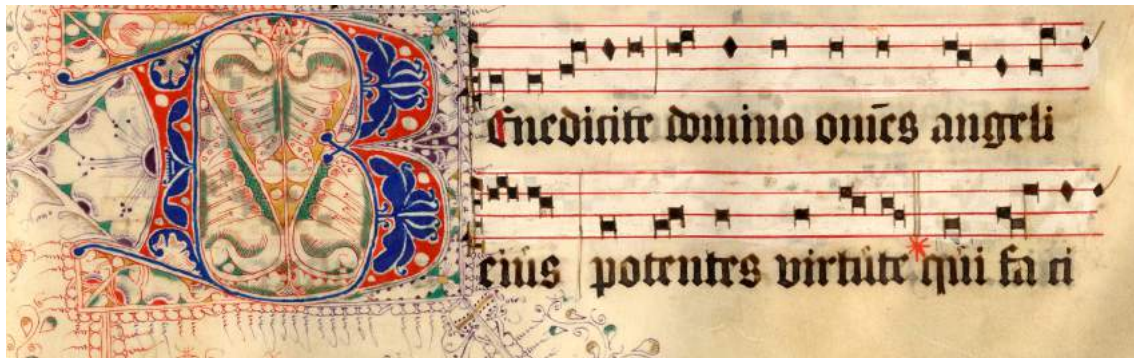 Benedicite domino om̄es angeli
eius potentes virtute qui fa ci